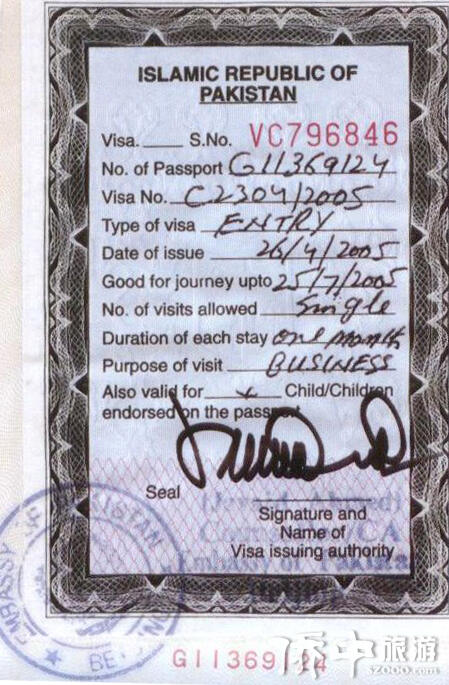 ISLAMIC REPUBLIC OF
PAKISTAN
Visa. ____ S.No. VC796846
No. of Passport G11369124
Visa No. C2304/2005
Type of visa ENTRY
Date of issue 26/4/2005
Good for journey upto 25/7/2005
No. of visits allowed Single
Duration of each stay one month
Purpose of visit BUSINESS
Also valid for x Child/Children
endorsed on the passport
Seal
(Javaid Ahmed)
Signature and
Name of
Visa issuing authority
Embassy of Pakistan
EMBASSY OF PAKISTAN
BE
G11369124
侨中旅游